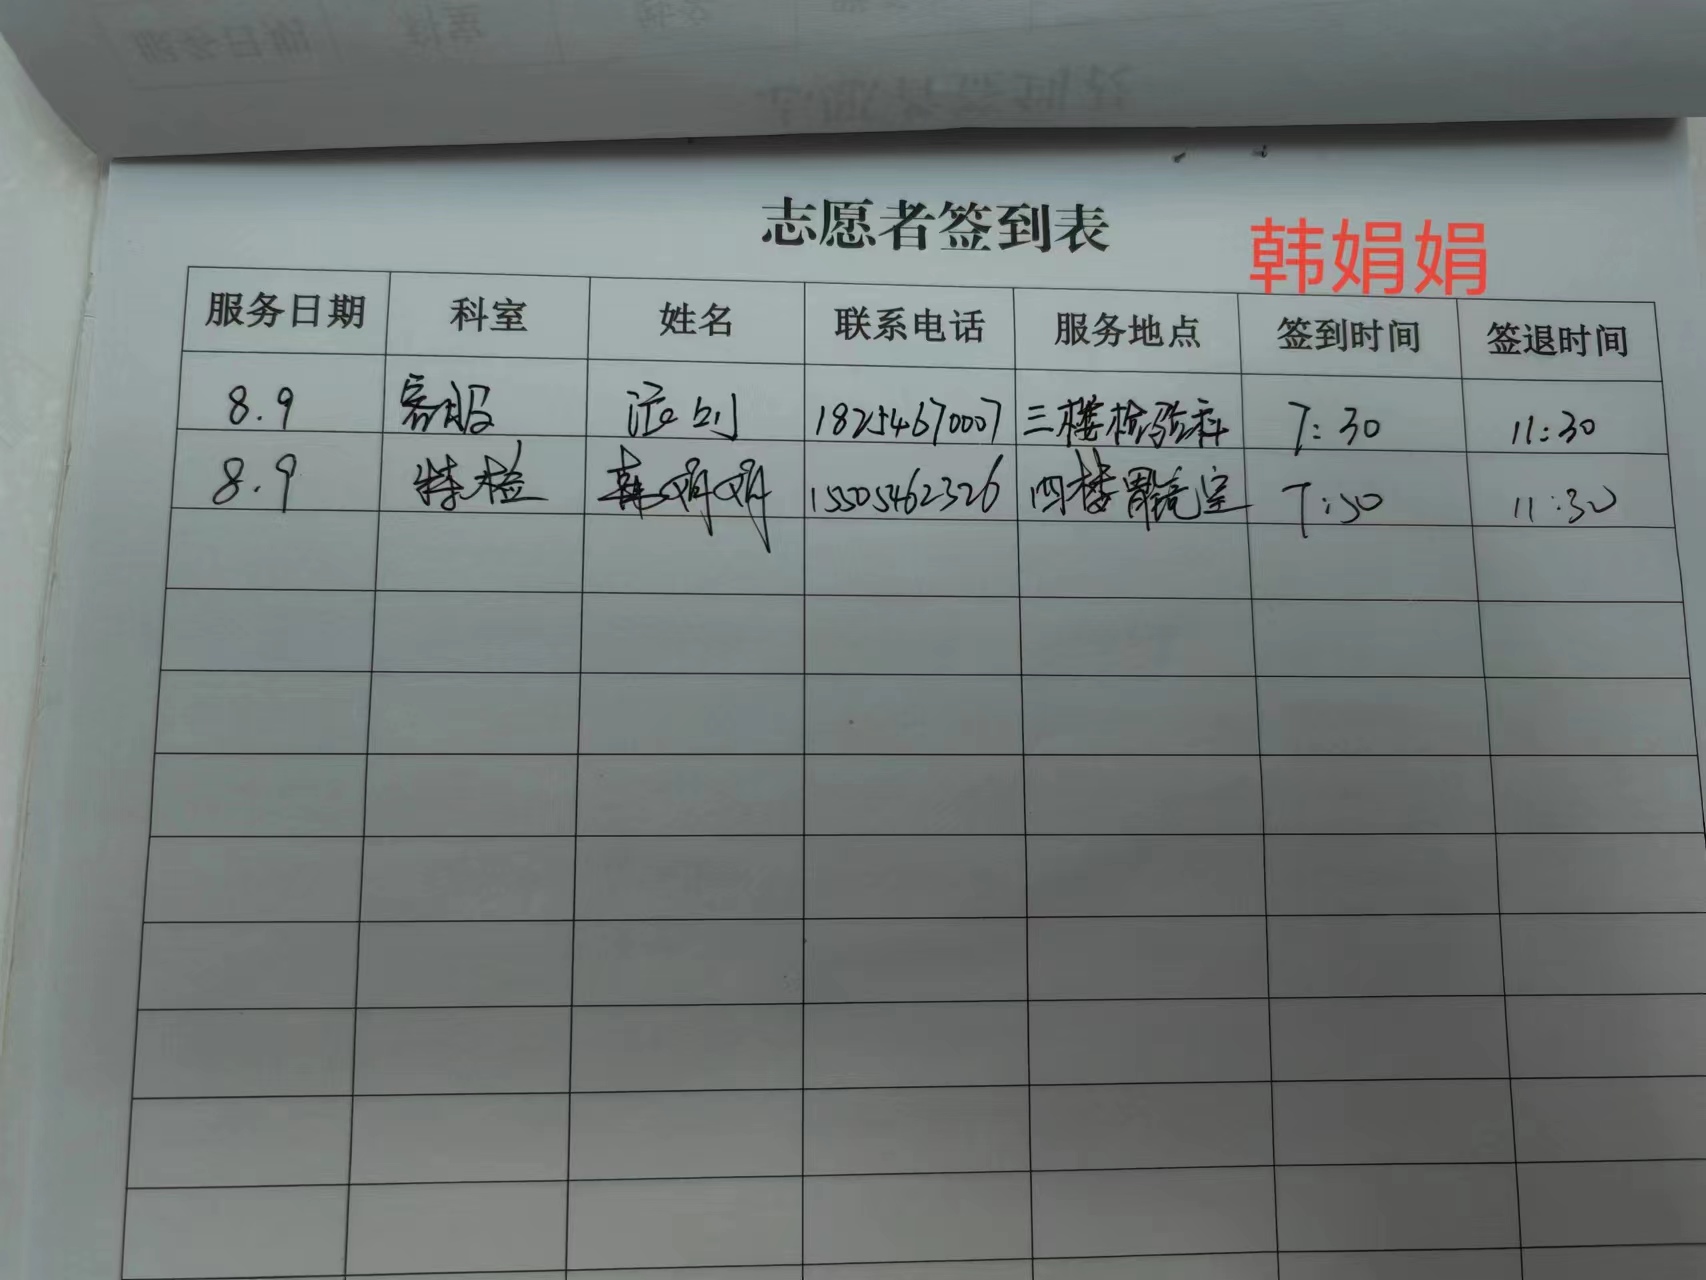 志愿者签到表
韩娟娟
服务日期 科室 姓名 联系电话 服务地点 签到时间 签退时间
8.9 客服 18254670007 三楼检验科 7:30 11:30
8.9 特检 韩娟娟 15505462326 四楼胃镜室 7:30 11:30